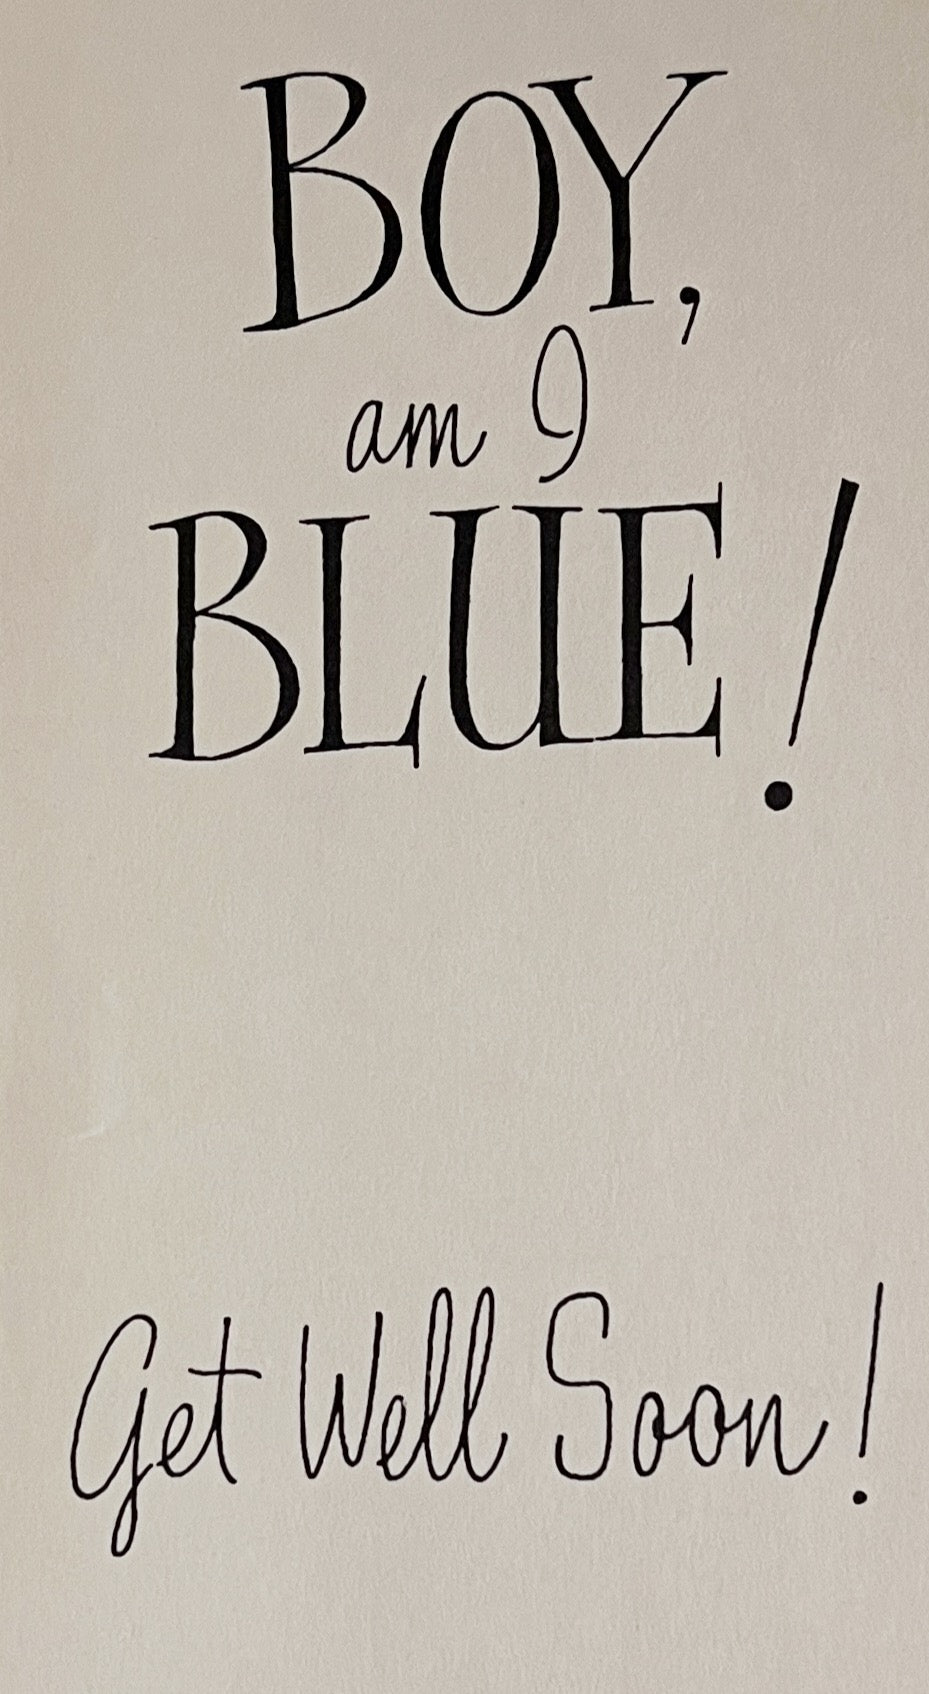 BOY,
am I
BLUE!
Get Well Soon!